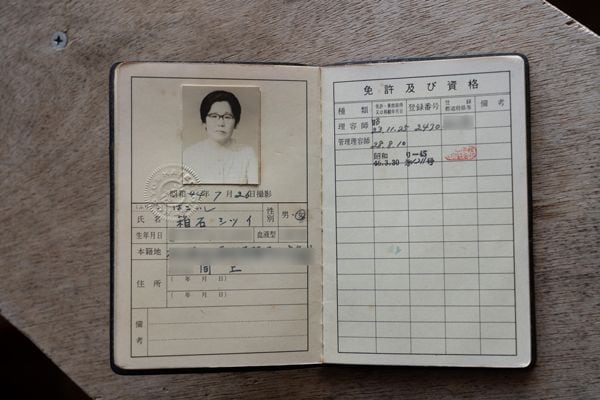 昭和44年7月26日撮影
氏名 箱石シツイ 性別 男・女
生年月日 血液型
本籍地
同上
住所 (年月日)
(年月日)
備考
免許及び資格
種類 登録番号 備考
理容師 昭 23.11.25 2470
管理理容師 28.8.10
昭和
46.3.30